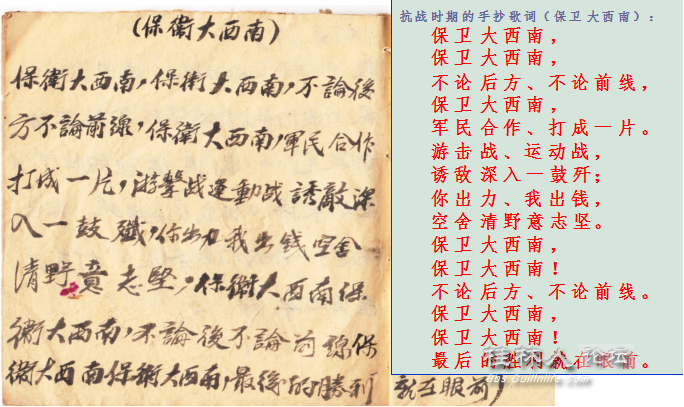 (保衛大西南)
保衛大西南,保衛大西南,不論後
方不論前線,保衛大西南,軍民合作
打成一片,游擊战運動战誘敵深
入一鼓殲,你出力我出钱空舍
清野意志堅,保衛大西南保
衛大西南,不論後不論前線保
衛大西南保衛大西南,最後的勝利 就在眼前)
抗战时期的手抄歌词(保卫大西南):
保卫大西南,
保卫大西南,
不论后方、不论前线,
保卫大西南,
军民合作、打成一片。
游击战、运动战,
诱敌深入一鼓歼;
你出力、我出钱,
空舍清野意志坚。
保卫大西南,
保卫大西南!
不论后方、不论前线。
保卫大西南,
保卫大西南!
最后的胜利就在眼前。
桂林人论坛